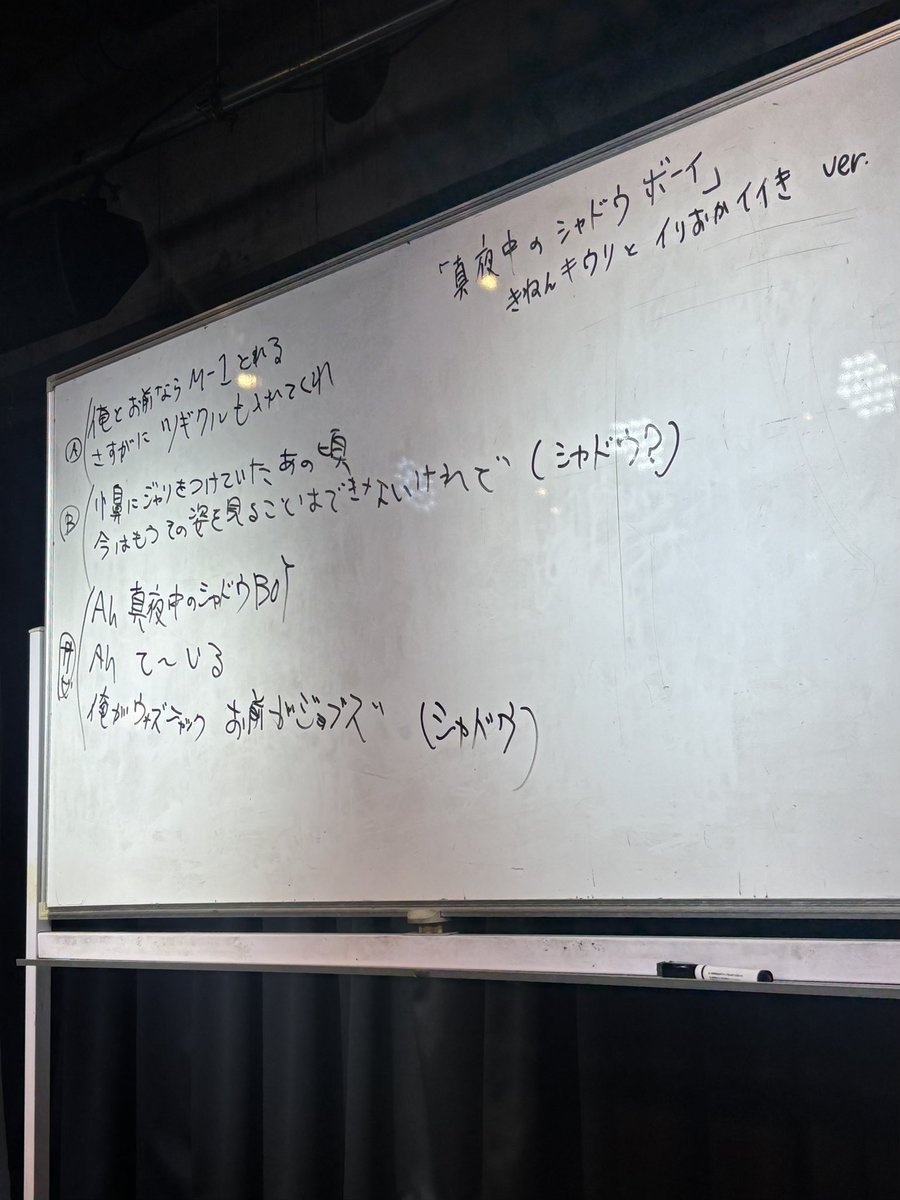 「真夜中のシャドウボーイ」
きねんキウリと イリおかイイき ver.
Ⓐ 俺とお前なら M-1とれる
さすがに ツギクルも入れてくれ
Ⓑ 小鼻にジャリをつけていた あの頃
今はもうその姿を見ることはできないけれど (シャドウ?)
サビ Ah 真夜中のシャドウBOY
Ah て〜いる
俺がウォズニャック お前がジョブズ (シャドウ)